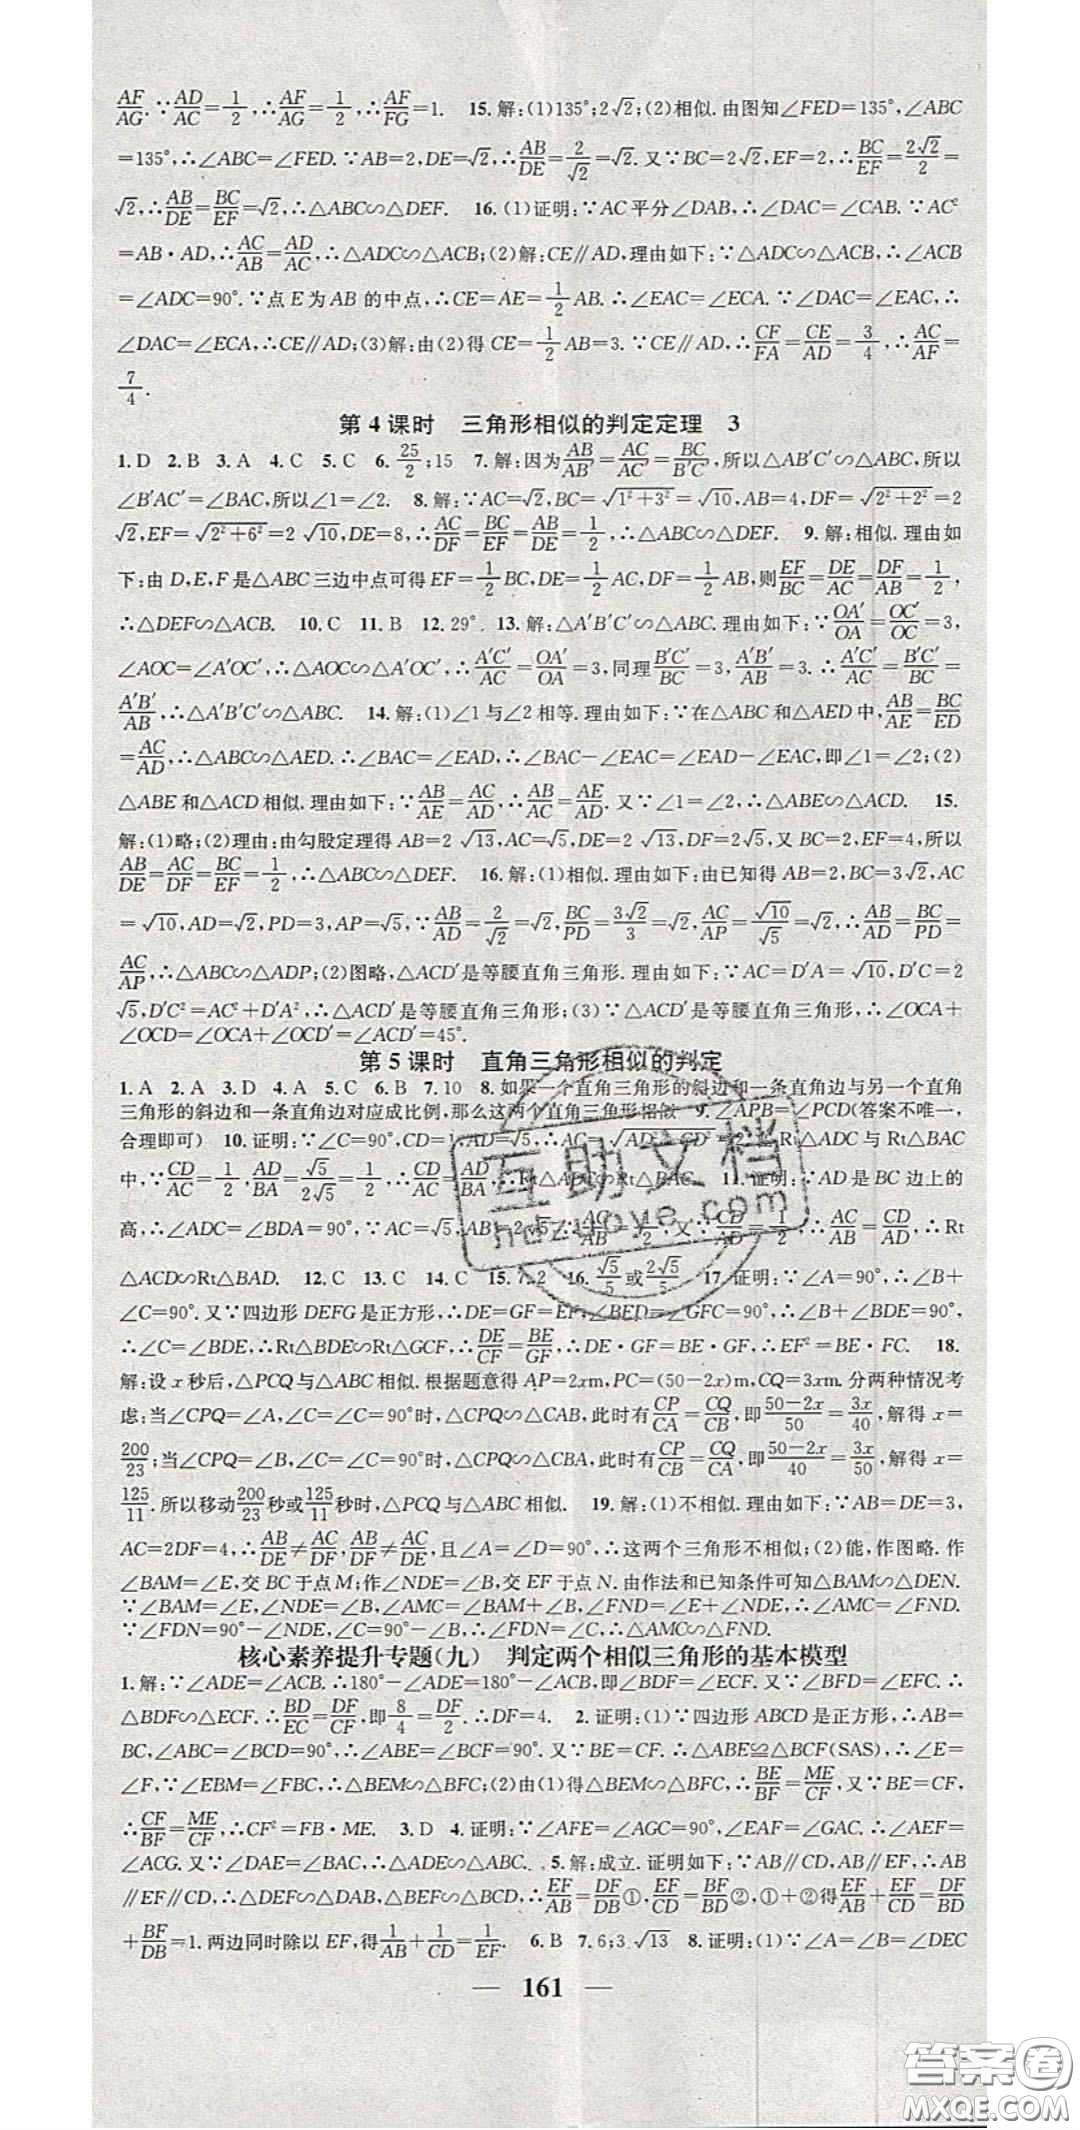 AF/AG.∵AD/AC=1/2,∴AF/AG=1/2,∴AF/FG=1. 15.解:(1)135°;2√2;(2)相似.由图知∠FED=135°,∠ABC
=135°,∴∠ABC=∠FED.∵AB=2,DE=√2,∴AB/DE=2/√2=√2.又∵BC=2√2,EF=2,∴BC/EF=2√2/2=
√2,∴AB/DE=BC/EF=√2,∴△ABC∽△DEF. 16.(1)证明:∵AC平分∠DAB,∴∠DAC=∠CAB.∵AC²
=AB·AD,∴AC/AB=AD/AC,∴△ADC∽△ACB;(2)解:CE∥AD.理由如下:∵△ADC∽△ACB,∴∠ACB
=∠ADC=90°.∵点E为AB的中点,∴CE=AE=1/2AB.∴∠EAC=∠ECA.∵∠DAC=∠EAC,∴
∠DAC=∠ECA,∴CE∥AD;(3)解:由(2)得CE=1/2AB=3.∵CE∥AD,∴CF/FA=CE/AD=3/4,∴AC/AF=
7/4.
第4课时 三角形相似的判定定理 3
1.D 2.B 3.A 4.C 5.C 6.25/2;15 7.解:因为AB/AB′=AC/AC′=BC/B′C′,所以△AB′C′∽△ABC,所以
∠B′AC′=∠BAC,所以∠1=∠2. 8.解:∵AC=√2,BC=√(1²+3²)=√10,AB=4,DF=√(2²+2²)=2
√2,EF=√(2²+6²)=2√10,DE=8,∴AC/DF=BC/EF=AB/DE=1/2,∴△ABC∽△DEF. 9.解:相似.理由如
下:由D,E,F是△ABC三边中点可得EF=1/2BC,DE=1/2AC,DF=1/2AB,则EF/BC=DE/AC=DF/AB=1/2,
∴△DEF∽△ACB. 10.C 11.B 12.29°. 13.解:△A′B′C′∽△ABC.理由如下:∵OA′/OA=OC′/OC=3,
∠AOC=∠A′OC′,∴△AOC∽△A′OC′,∴A′C′/AC=OA′/OA=3,同理B′C′/BC=3,A′B′/AB=3.∴A′C′/AC=B′C′/BC=
A′B′/AB,∴△A′B′C′∽△ABC. 14.解:(1)∠1与∠2相等.理由如下:∵在△ABC和△AED中,AB/AE=BC/ED
=AC/AD,∴△ABC∽△AED.∴∠BAC=∠EAD,∴∠BAC-∠EAC=∠EAD-∠EAC,即∠1=∠2;(2)
△ABE和△ACD相似.理由如下:∵AB/AE=AC/AD,∴AB/AC=AE/AD.又∵∠1=∠2,∴△ABE∽△ACD. 15.
解:(1)略;(2)理由:由勾股定理得AB=2√13,AC=√5,DE=2√13,DF=2√5,又BC=2,EF=4,所以
AB/DE=AC/DF=BC/EF=1/2,∴△ABC∽△DEF. 16.解:(1)相似.理由如下:由已知得AB=2,BC=3√2,AC
=√10,AD=√2,PD=3,AP=√5,∵AB/AD=2/√2=√2,BC/PD=3√2/3=√2,AC/AP=√10/√5=√2,∴AB/AD=BC/PD=
AC/AP,∴△ABC∽△ADP;(2)图略,△ACD′是等腰直角三角形.理由如下:∵AC=D′A=√10,D′C=2
√5,D′C²=AC²+D′A²,∴△ACD′是等腰直角三角形;(3)∵△ACD′是等腰直角三角形,∴∠OCA+
∠OCD=∠OCA+∠OCD′=∠ACD′=45°.
第5课时 直角三角形相似的判定
1.A 2.A 3.D 4.A 5.C 6.B 7.10 8.如果一个直角三角形的斜边和一条直角边与另一个直角
三角形的斜边和一条直角边对应成比例,那么这两个直角三角形相似 9.∠APB=∠PCD(答案不唯一,
合理即可) 10.证明:∵∠C=90°,CD=1,AD=√5,∴AC=√(AD²-CD²)=2.在Rt△ADC与Rt△BAC
中,∵CD/AC=1/2,AD/BA=√5/2√5=1/2,∴CD/AC=AD/BA,∴Rt△ADC∽Rt△BAC. 11.证明:∵AD是BC边上的
高,∴∠ADC=∠BDA=90°,∵AC=√5,AB=2√5,∴AC/AB=1/2,又∵CD/AD=1/2,∴AC/AB=CD/AD,∴Rt
△ACD∽Rt△BAD. 12.C 13.C 14.C 15.7.2 16.√5/5或2√5/5 17.证明:∵∠A=90°,∴∠B+
∠C=90°.又∵四边形DEFG是正方形,∴DE=GF=EF,∠BED=∠GFC=90°,∴∠B+∠BDE=90°,
∴∠C=∠BDE,∴Rt△BDE∽Rt△GCF,∴DE/CF=BE/GF,∴DE·GF=BE·GF,∴EF²=BE·FC. 18.
解:设x秒后,△PCQ与△ABC相似.根据题意得AP=2xm,PC=(50-2x)m,CQ=3xm.分两种情况考
虑:当∠CPQ=∠A,∠C=∠C=90°时,△CPQ∽△CAB,此时有CP/CA=CQ/CB,即50-2x/50=3x/40,解得x=
200/23;当∠CPQ=∠B,∠C=∠C=90°时,△CPQ∽△CBA,此时有CP/CB=CQ/CA,即50-2x/40=3x/50,解得x=
125/11.所以移动200/23秒或125/11秒时,△PCQ与△ABC相似. 19.解:(1)不相似.理由如下:∵AB=DE=3,
AC=2DF=4,∴AB/DE≠AC/DF,AB/DF≠AC/DE,且∠A=∠D=90°,∴这两个三角形不相似;(2)能,作图略.作
∠BAM=∠E,交BC于点M;作∠NDE=∠B,交EF于点N.由作法和已知条件可知△BAM∽△DEN.
∵∠BAM=∠E,∠NDE=∠B,∠AMC=∠BAM+∠B,∠FND=∠E+∠NDE,∴∠AMC=∠FND.
∵∠FDN=90°-∠NDE,∠C=90°-∠B,∴∠FDN=∠C.∴△AMC∽△FND.
核心素养提升专题(九) 判定两个相似三角形的基本模型
1.解:∵∠ADE=∠ACB.∴180°-∠ADE=180°-∠ACB,即∠BDF=∠ECF.又∵∠BFD=∠EFC.∴
△BDF∽△ECF.∴BD/EC=DF/CF,即8/4=DF/2.∴DF=4. 2.证明:(1)∵四边形ABCD是正方形,∴AB=
BC,∠ABC=∠BCD=90°,∴∠ABE=∠BCF=90°.又∵BE=CF.∴△ABE≌△BCF(SAS),∴∠E=
∠F,∵∠EBM=∠FBC,∴△BEM∽△BFC;(2)由(1)得△BEM∽△BFC,∴BE/BF=ME/CF,又∵BE=CF,
∴CF/BF=ME/CF,∴CF²=FB·ME. 3.D 4.证明:∵∠AFE=∠AGC=90°,∠EAF=∠GAC.∴∠AEF=
∠ACG.又∵∠DAE=∠BAC,∴△ADE∽△ABC. 5.解:成立.证明如下:∵AB∥CD,AB∥EF,∴AB
∥EF∥CD,∴△DEF∽△DAB,△BEF∽△BCD,∴EF/AB=DF/DB①,EF/CD=BF/BD②,①+②得EF/AB+EF/CD=DF/BD
+BF/DB=1.两边同时除以EF,得1/AB+1/CD=1/EF. 6.B 7.6;3√13 8.证明:(1)∵∠A=∠B=∠DEC
— 161 —
互助文档
hdzuoye.com
答案卷
MXQE.COM